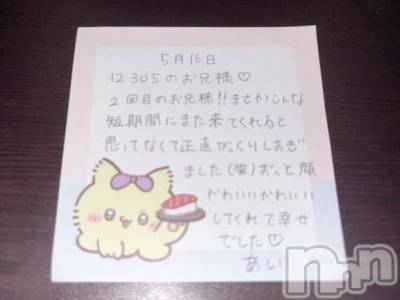 5月16日
12305のお兄様♡
2回目のお兄様!!まさかこんな
短期間にまた来てくれると
思ってなくて正直びっくりしすぎ
ました(笑)ずっと顔
かわいいかわいい
してくれて幸せ
でした♡
あい